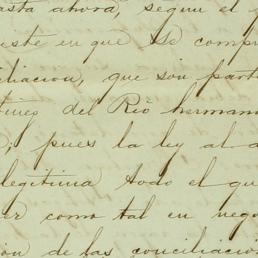 asta ahora, segun el
este en que se compr
ciliacion, que son part
tines del Rio hermano
; pues la ley al d
legitima todo el qu
er como tal en nego
on de las conciliacio